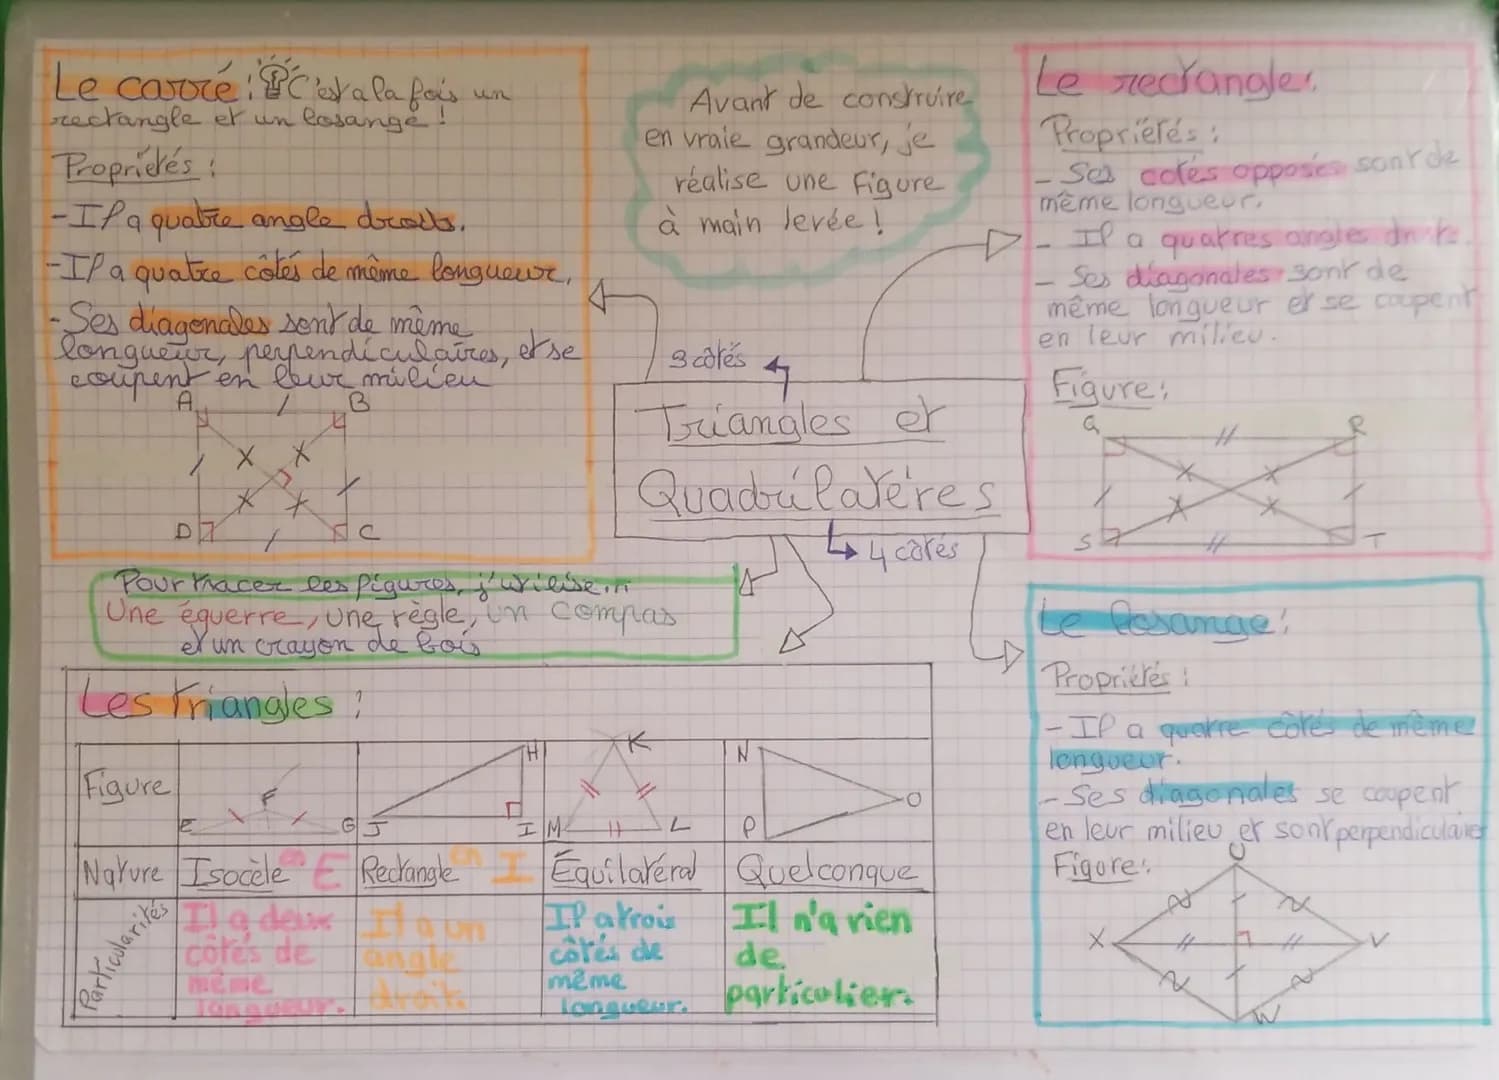 Le carré : C'est a la fois un
rectangle et un losange !
Propriétés :
- Il a quatre angle droits.
- Il a quatre côtés de même longueur.
- Ses diagonales sont de même
longueur, perpendiculaires, et se
coupent en leur milieu
A B
D C
Avant de construire
en vraie grandeur, je
réalise une Figure
à main levée !
Le rectangle :
Propriétés :
- Ses cotés opposés sont de
même longueur.
- Il a quatres angles droits.
- Ses diagonales sont de
même longueur et se coupent
en leur milieu.
Figure :
Q R
S T
3 côtés
Triangles et
Quadrilatères
4 côtés
Pour tracer les figures, j'utilise...
Une équerre, une règle, un compas
et un crayon de bois
Les triangles :
Figure
E F G
J H I
K M L
N O P
Nature Isocèle en E Rectangle en I Équilatéral Quelconque
Particularités
Il a deux
côtés de
même
longueur.
Il a un
angle
droit.
Il a trois
côtés de
même
longueur.
Il n'a rien
de
particulier.
Le losange :
Propriétés :
- Il a quatre côtés de même
longueur.
- Ses diagonales se coupent
en leur milieu et sont perpendiculaires
Figure :
U
X V
W